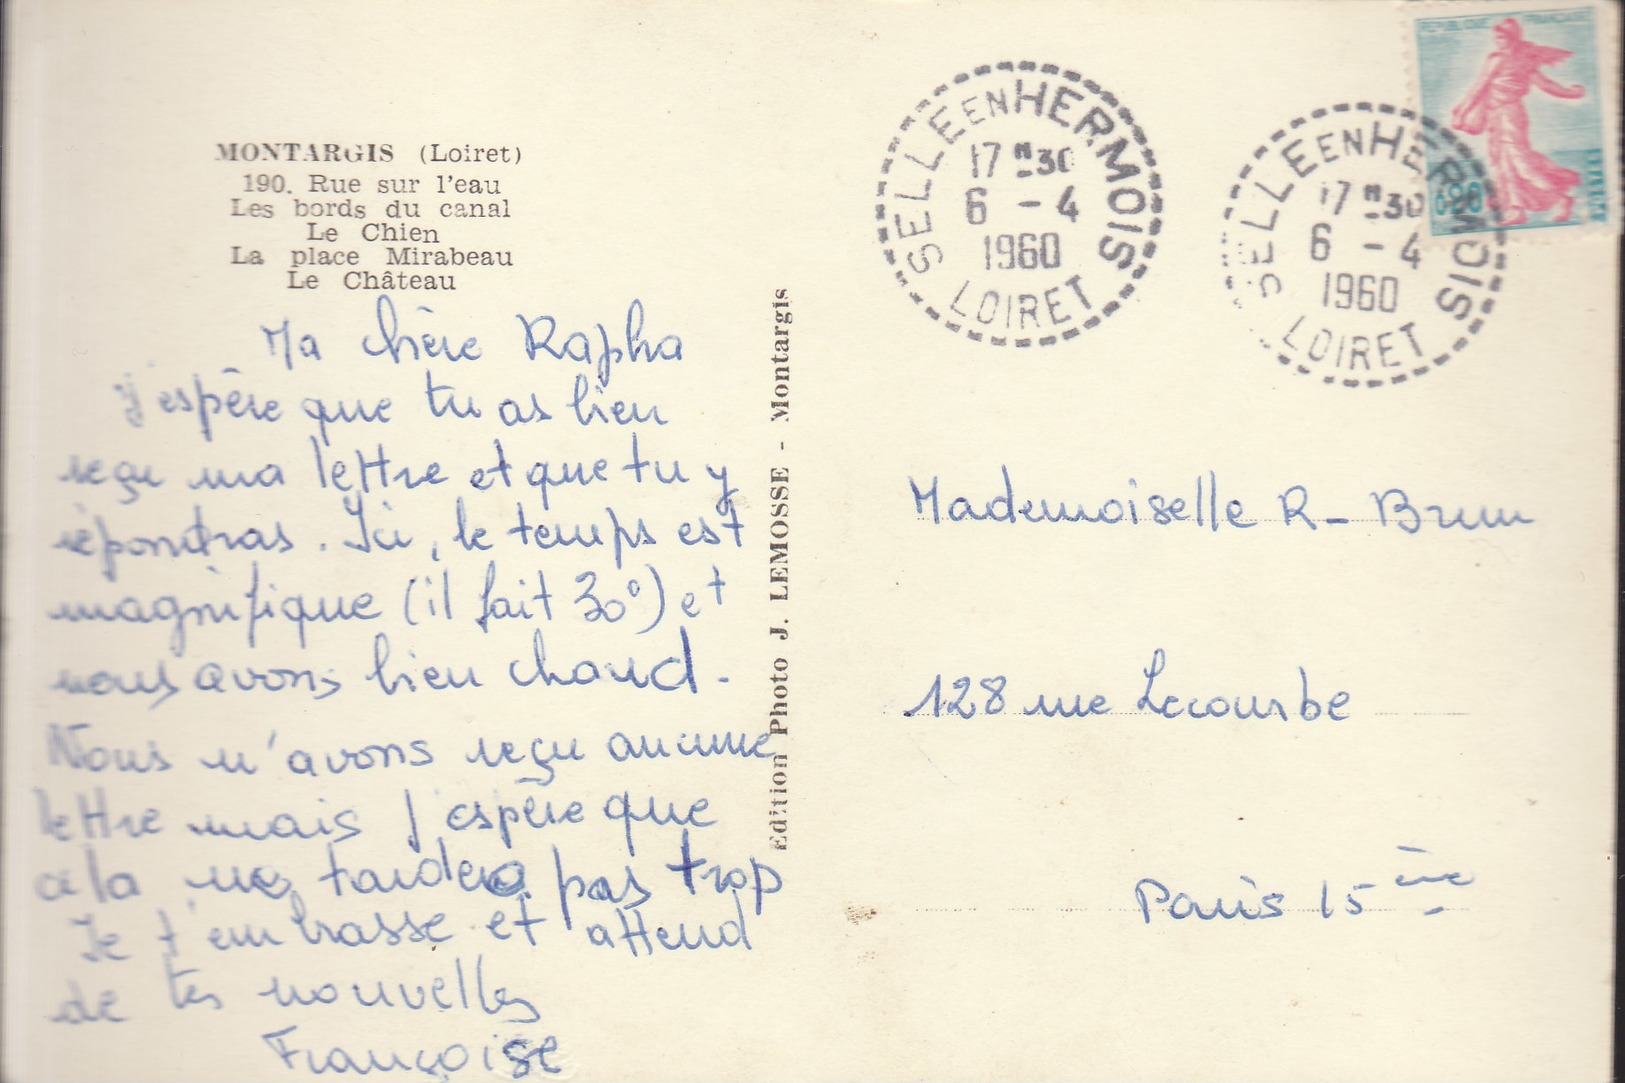 MONTARGIS (Loiret)
190. Rue sur l'eau
Les bords du canal
Le Chien
La place Mirabeau
Le Château
Ma chère Rapha
j'espère que tu as bien
reçu ma lettre et que tu y
répondras. Ici, le temps est
magnifique (il fait 30°) et
nous avons bien chaud.
Nous n'avons reçu aucune
lettre mais j'espère que
cela ne tardera pas trop
Je t'embrasse et attend
de tes nouvelles
Françoise
Edition Photo J. LEMOSSE - Montargis
SELLE EN HERMOIS
17 H 30
6 - 4
1960
LOIRET
SELLE EN HERMOIS
17 H 30
6 - 4
1960
LOIRET
REPUBLIQUE FRANÇAISE
POSTES
Mademoiselle R- Brun
128 rue Lecourbe
Paris 15ème